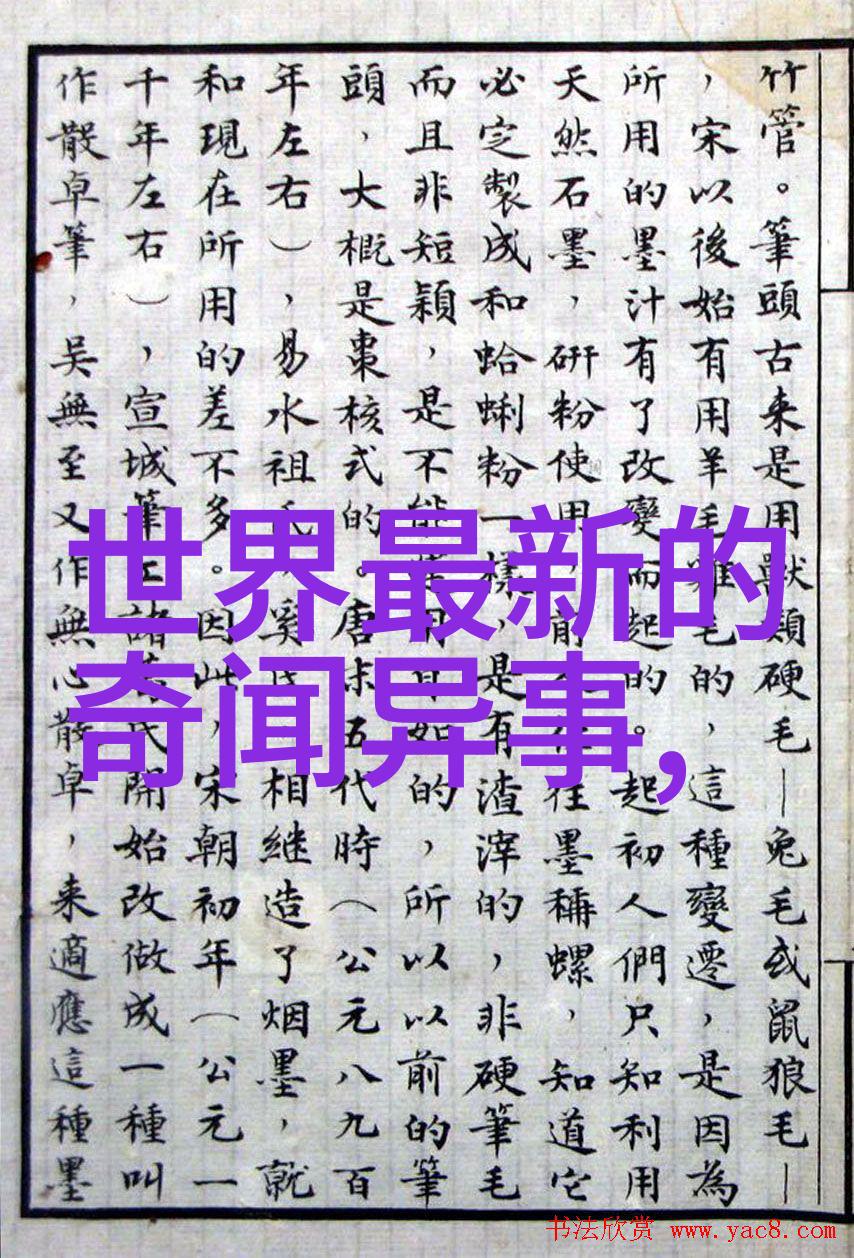 竹管。筆頭古来是用獸類硬毛—兔毛或鼠狼毛—
，宋以後始有用羊毛雞毛的，這種變遷，是因為
所用的墨汁有了改變而起的。起初人們只知利用
天然石墨，研粉使用，前人往往墨稱螺，知道它
必定製成和蛤蜊粉一樣，是有渣滓的，非硬筆毛
而且非短穎，是不能使用自如的，所以以前的筆
頭，大概是棗核式的。唐末五代時（公元八九百
年左右），易水祖氏、奚氏相继造了烟墨，就
和現在所用的差不多。因此，宋朝初年（公元一
千年左右），宣城筆工諸葛氏開始改做成一種叫
作散卓筆，吴無至又作無心散卓，来適應這種墨
世界最新的
奇闻异事,
书法欣赏 www.yac8.com